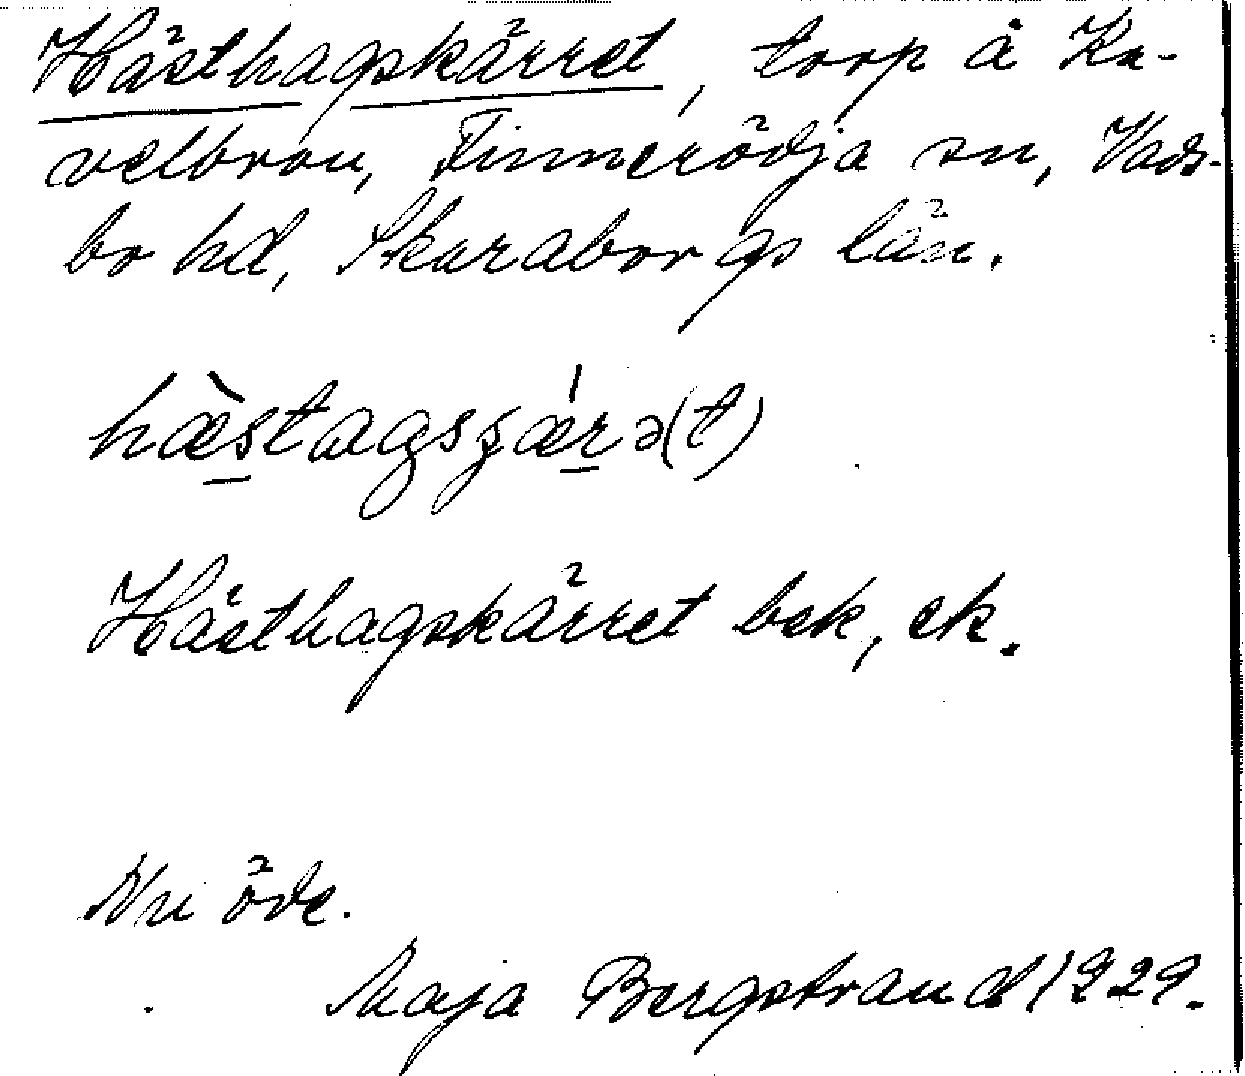 Hästhagskärret, torp å Ka-
velbron, Finnerödja sn, Vads-
bo hd, Skaraborgs län.
hæ̀stagsʂǽrə(t)
Hästhagskärret bek, ek.
Nu öde.
Maja Bergstrand 1929.